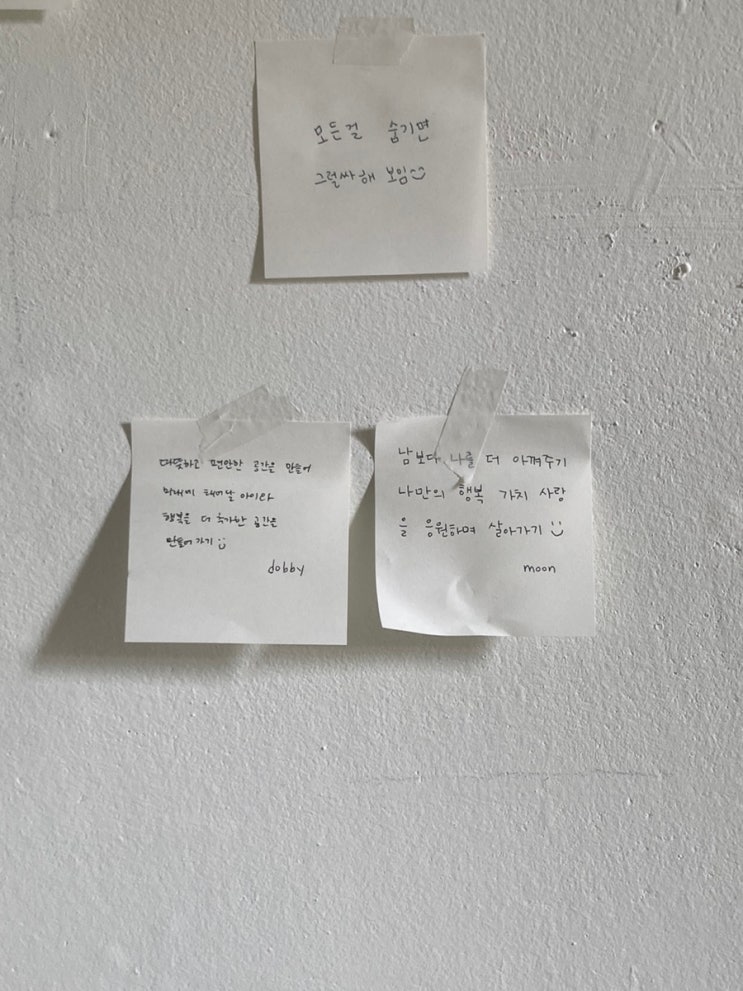 모든걸 숨기면
그럴싸해 보임
따뜻하고 편안한 공간을 만들어
태어날 아이와
행복을 더 추가한 공간을
만들어 가기 :)
dobby
남보다 나를 더 아껴주기
나만의 행복 가치 사랑
을 응원하며 살아가기 :)
moon